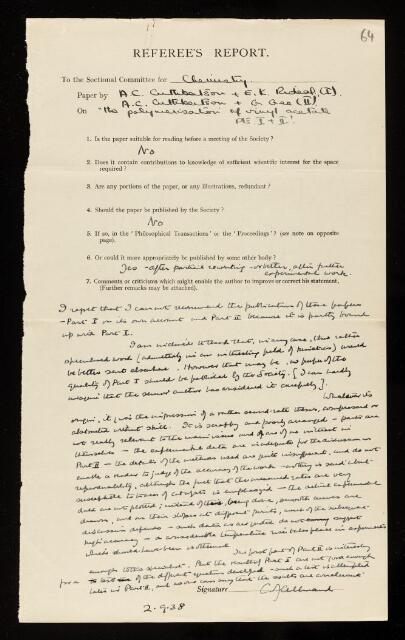 64
REFEREE'S REPORT.
To the Sectional Committee for Chemistry.
Paper by A.C. Cuthbertson + E.K. Rideal (I).
A.C. Cuthbertson + G. Gee (II).
On "The polymerisation of vinyl acetate
Pts I + II."
1. Is the paper suitable for reading before a meeting of the Society?
No
2. Does it contain contributions to knowledge of sufficient scientific interest for the space
required?
3. Are any portions of the paper, or any illustrations, redundant?
4. Should the paper be published by the Society?
No
5. If so, in the 'Philosophical Transactions' or the 'Proceedings'? (see note on opposite
page).
6. Or could it more appropriately be published by some other body?
Yes - after partial rewriting - or better, after further
experimental work.
7. Comments or criticisms which might enable the author to improve or correct his statement.
(Further remarks may be attached).
I regret that I cannot recommend the publication of these papers
- Part I on its own account and Part II because it is partly bound
up with Part I.
I am inclined to think that, in any case, this rather
specialised work (admittedly in an interesting field of kinetics) would
be better sent elsewhere. However that may be, no paper of the
quality of Part I should be published by the Society. [I can hardly
imagine that the senior author has considered it carefully].
Whatever its
origin, it gives the impression of a rather second-rate thesis, compressed or
abstracted without skill. It is scrappy and poorly arranged - parts are
not really relevant to the main issue and of no interest in
themselves - the experimental data are inadequate for the discussion in
Part II - the details of the methods used are quite insufficient, and do not
enable a reader to judge of the accuracy of the work - nothing is said about
reproducibility, although the fact that the measured rates are very
susceptible to traces of catalysts is emphasised - the actual experimental
data are not plotted; instead of this, smooth curves are
drawn, and on their slopes at different points, much of the subsequent
discussion depends - such data as are quoted do not suggest
high accuracy - a considerable temperature rise takes place in experiments
which should have been isothermal.
The first part of Part II is interesting
enough to be
for a test of the different equations developed - such a test is attempted
later in Part II, and no one can say that the results are conclusive
Signature
2.9.38